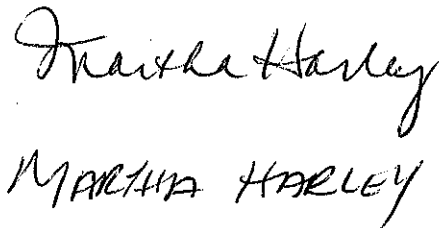 Martha Harley
MARTHA HARLEY